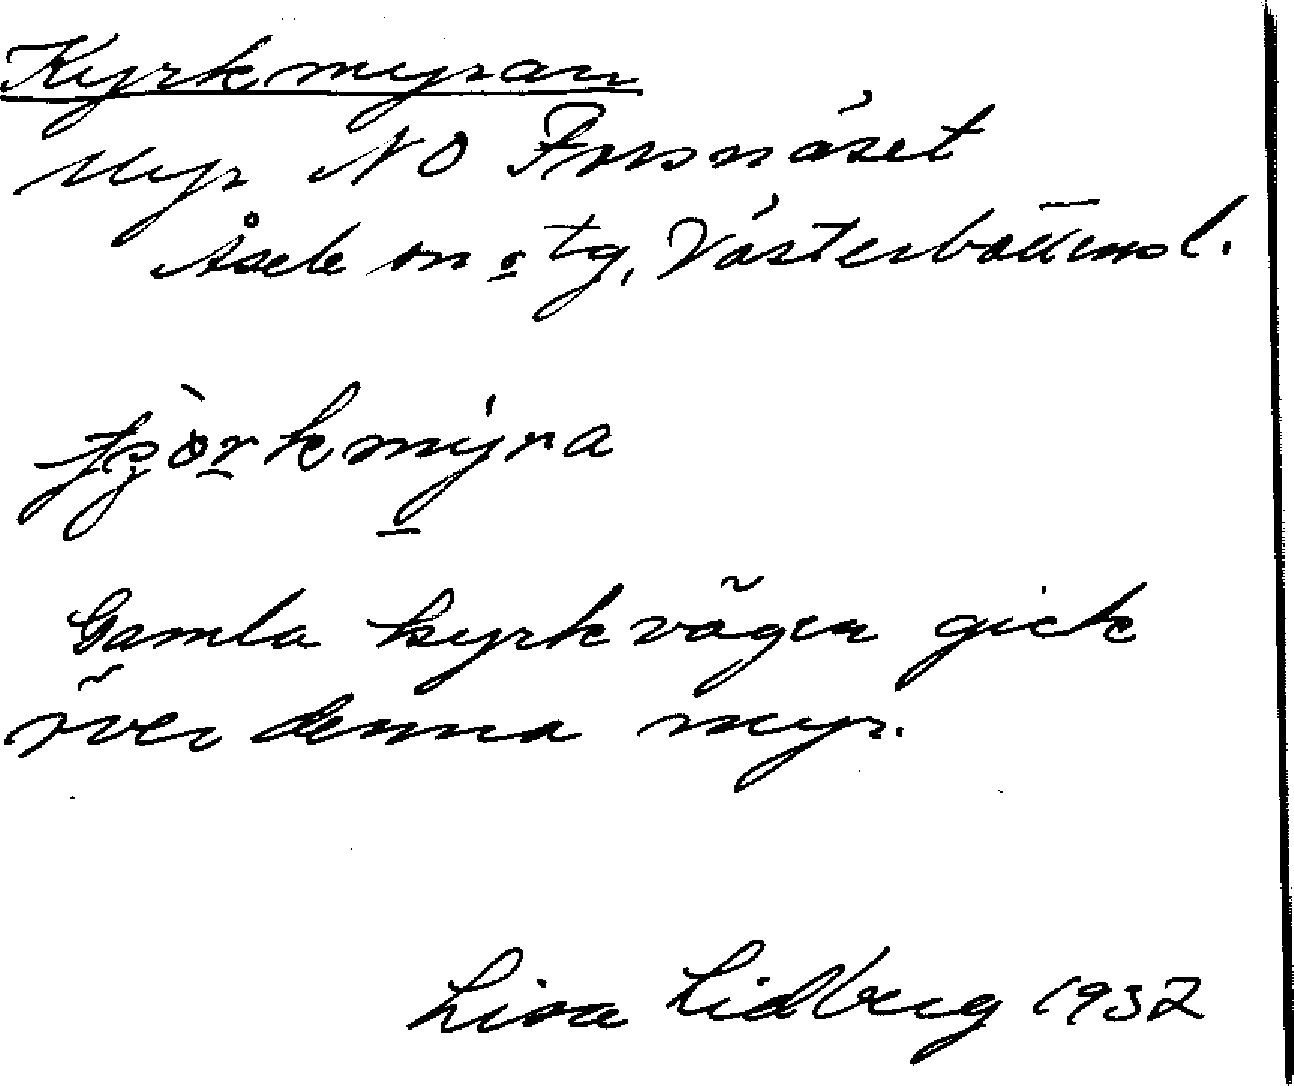 Kyrkmyran
Myr NO Forsnäset
Åsele sn o tg, Västerbottens l.
Gamla kyrkvägen gick
över denna myr.
Lisa Lidberg 1932